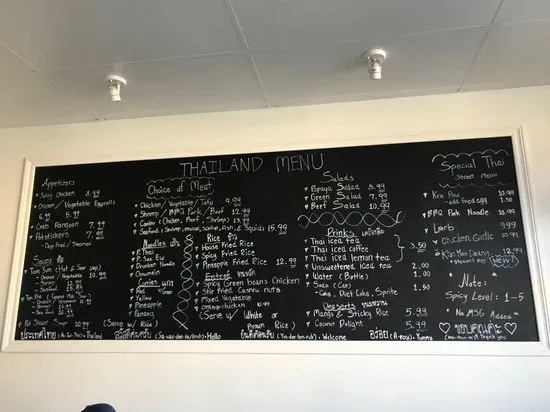 THAILAND MENU
Appetizers
Spicy Chicken 8.99
Chicken / Vegetable Eggrolls
6.99 5.99
Crab Rangoon 7.99
Pot-stickers 7.99
- Deep Fried / Steamed
Soups
Tom Sum (Hot & Sour soup)
- Chicken / Vegetable 10.99
- Shrimp
- Seafood
Choice of Meat
Chicken / Vegetable / Tofu 9.99
Shrimp / BBQ Pork / Beef 12.99
Combo (Chicken, Beef, Shrimp) 13.99
Seafood (Shrimp, mussel, scallop, fish, & Squids 15.99
Noodles เส้น
P. Thai
P. See Ew
Drunken Noodle
Chowmein
Curries แกง
Red
Yellow
Pineapple
Panang
(Serve w/ Rice)
Rice ข้าว
House Fried Rice
Spicy Fried Rice
Pineapple Fried Rice 12.99
Entrée
Spicy Green beans Chicken
Stir Fried Cashew nuts
Mixed Vegetable
Ginger chicken 10.99
(Serve w/ White or Brown Rice)
Salads
Papaya Salad 8.99
Green Salad 7.99
Beef Salad 10.99
Drinks
Thai iced tea
Thai iced coffee
Thai iced lemon tea
3.50
Unsweetened iced tea 2.00
Water (Bottle) 1.00
Soda (Can) 1.50
- Coke, Diet Coke, Sprite
Desserts
Mango & Sticky Rice 5.99
Coconut Delight 5.99
Special Thai
Street Menu
Kra Pow 10.99
- add fried egg 1.50
BBQ Pork Noodle 10.99
Larb 9.99
Chicken Garlic
10.99
12.99
New!
Note:
Spicy Level: 1-5
* No MSG Added *
ประเทศไทย
สวัสดี (Sa-was-dee-ka/krub) - Hello
Welcome
อร่อย (A-roy) - Yummy